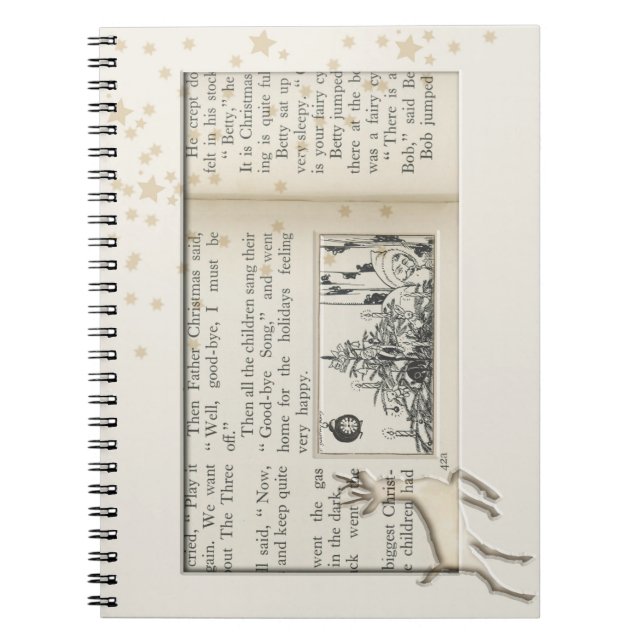 cried, “ Play it
gain. We want
bout The Three
ll said, “ Now,
and keep quite
went the gas
in the dark,
ck went the
biggest Christ-
e children had
Then Father Christmas said,
“ Well, good-bye, I must be
off.”
Then all the children sang their
“ Good-bye Song,” and went
home for the holidays feeling
very happy.
42a
He crept do
felt in his stock
“ Betty,” he
It is Christmas
ing is quite ful
Betty sat up
very sleepy. “
is your fairy cy
Betty jumped
there at the bo
was a fairy cy
“ There is a
Bob,” said Be
Bob jumped